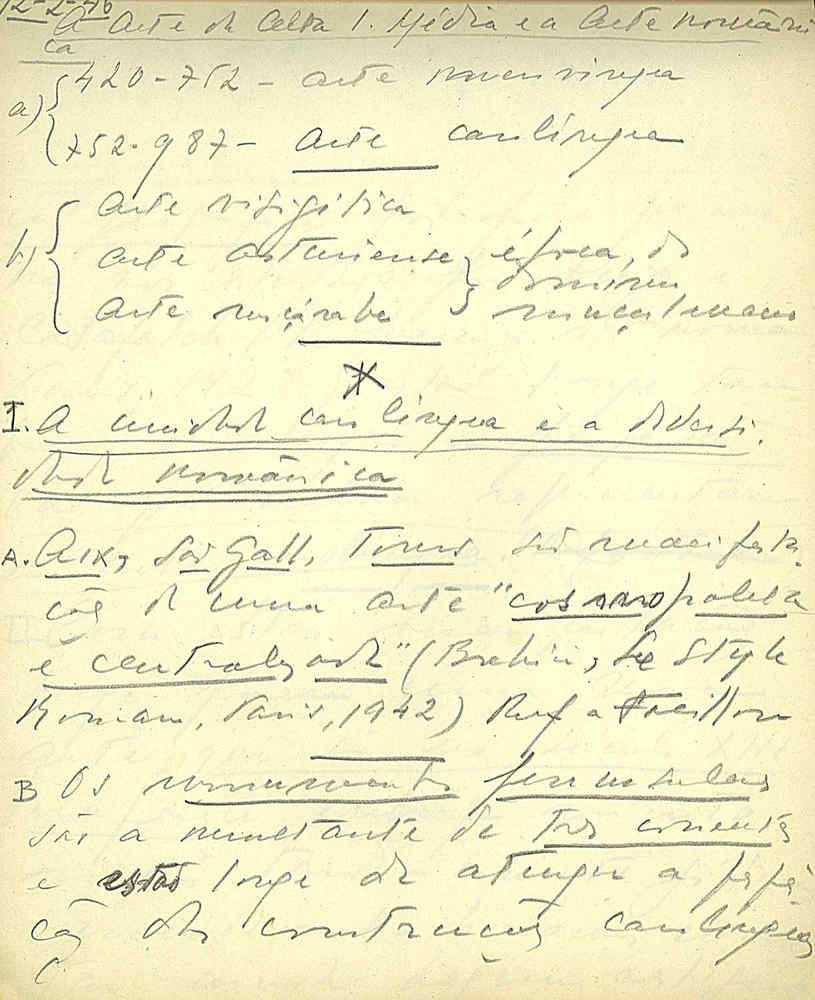 12-2-76
A Arte da Alta I. Média e a Arte români
ca
a) { 420-752 - arte merovíngea
752-987 - arte carolíngea
b) { arte visigótica
arte asturiense } época do
domínio
arte moçárabe } muçulmano
I. A unidade carolíngea e a diversi
dade românica
A. Aix, São Gall, Tours são manifesta
ção de uma arte "cosmopolita
e centralizada" (Brehier, Le Style
Roman, Paris, 1942) Ref a Focillon
B Os monumentos peninsulares
são a resultante de três correntes
e estão longe de atingir a
das construções carolíngeas